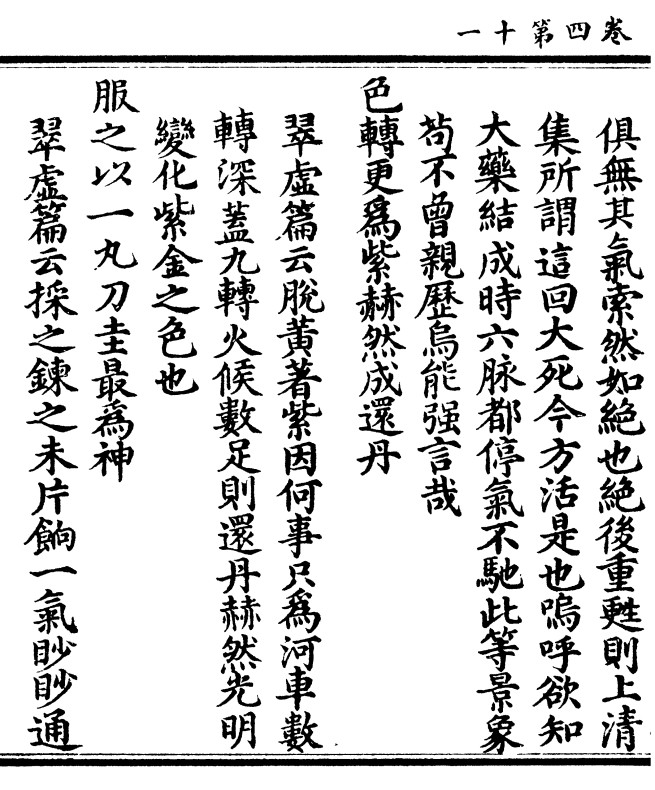 卷四第十一
俱無其氣索然如絕也絕後重甦則上清
集所謂這回大死今方活是也嗚呼欲知
大藥結成時六脉都停氣不馳此等景象
苟不曾親歷烏能强言哉
色轉更爲紫赫然成還丹
翠虛篇云脫黃著紫因何事只爲河車數
轉深蓋九轉火候數足則還丹赫然光明
變化紫金之色也
服之以一丸刀圭最爲神
翠虛篇云採之鍊之未片餉一氣眇眇通